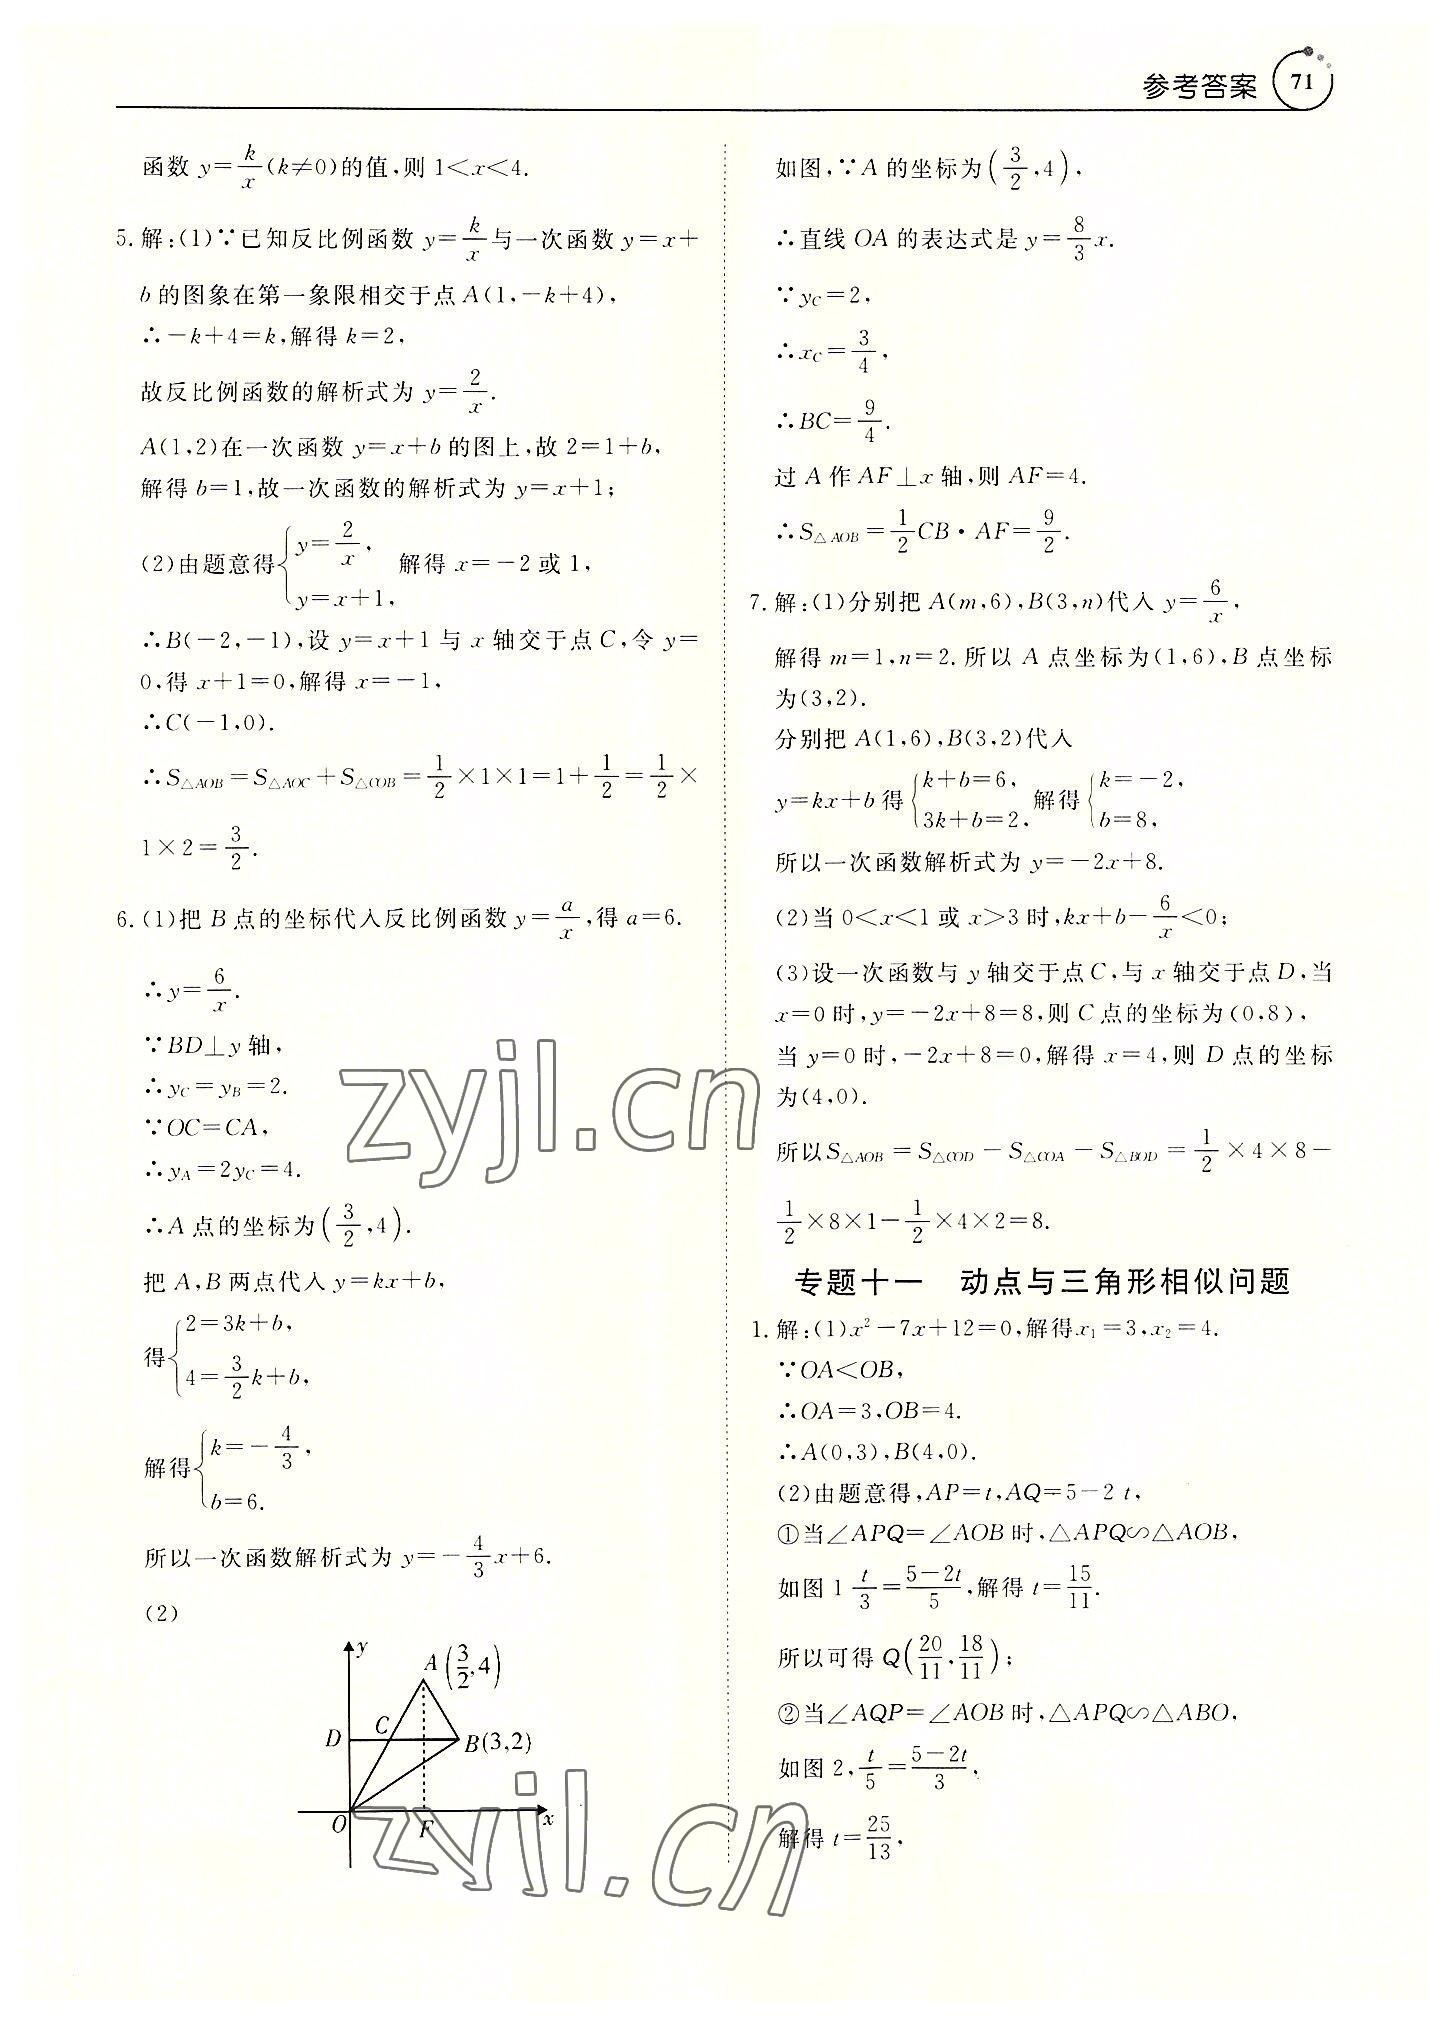 参考答案 71
函数 y=k/x(k≠0)的值,则 1<x<4.
5. 解:(1)∵已知反比例函数 y=k/x与一次函数 y=x+
b 的图象在第一象限相交于点 A(1,-k+4),
∴-k+4=k,解得 k=2,
故反比例函数的解析式为 y=2/x.
A(1,2)在一次函数 y=x+b 的图上,故 2=1+b,
解得 b=1,故一次函数的解析式为 y=x+1;
(2)由题意得{y=2/x, y=x+1, 解得 x=-2 或 1,
∴B(-2,-1),设 y=x+1 与 x 轴交于点 C,令 y=
0,得 x+1=0,解得 x=-1,
∴C(-1,0).
∴S△AOB=S△AOC+S△COB=1/2×1×1=1+1/2=1/2×
1×2=3/2.
6. (1)把 B 点的坐标代入反比例函数 y=a/x,得 a=6.
∴y=6/x.
∵BD⊥y 轴,
∴yC=yB=2.
∵OC=CA,
∴yA=2yC=4.
∴A 点的坐标为(3/2,4).
把 A,B 两点代入 y=kx+b,
得{2=3k+b, 4=3/2k+b,
解得{k=-4/3, b=6.
所以一次函数解析式为 y=-4/3x+6.
(2)
y
A(3/2,4)
D C B(3,2)
O F x
如图,∵A 的坐标为(3/2,4),
∴直线 OA 的表达式是 y=8/3x.
∵yC=2,
∴xC=3/4,
∴BC=9/4.
过 A 作 AF⊥x 轴,则 AF=4.
∴S△AOB=1/2CB·AF=9/2.
7. 解:(1)分别把 A(m,6),B(3,n)代入 y=6/x,
解得 m=1,n=2.所以 A 点坐标为(1,6),B 点坐标
为(3,2).
分别把 A(1,6),B(3,2)代入
y=kx+b 得{k+b=6, 3k+b=2, 解得{k=-2, b=8,
所以一次函数解析式为 y=-2x+8.
(2)当 0<x<1 或 x>3 时,kx+b-6/x<0;
(3)设一次函数与 y 轴交于点 C,与 x 轴交于点 D,当
x=0 时,y=-2x+8=8,则 C 点的坐标为(0,8),
当 y=0 时,-2x+8=0,解得 x=4,则 D 点的坐标
为(4,0).
所以S△AOB=S△COD-S△COA-S△BOD=1/2×4×8-
1/2×8×1-1/2×4×2=8.
专题十一 动点与三角形相似问题
1. 解:(1)x²-7x+12=0,解得x₁=3,x₂=4.
∵OA<OB,
∴OA=3,OB=4.
∴A(0,3),B(4,0).
(2)由题意得,AP=t,AQ=5-2t,
①当∠APQ=∠AOB 时,△APQ∽△AOB,
如图 1 t/3=(5-2t)/5,解得 t=15/11.
所以可得 Q(20/11,18/11);
②当∠AQP=∠AOB 时,△APQ∽△ABO,
如图 2,t/5=(5-2t)/3,
解得 t=25/13,
zyjl.cn
zyjl.cn